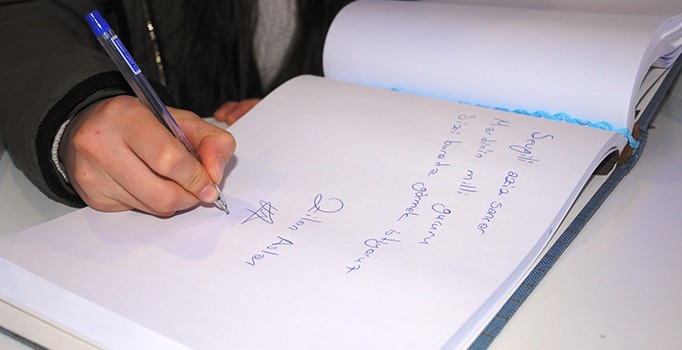 Sevgili aziz sancar
Mardinin milli gururu
Sizi burada görmek istiyoruz
Zilan Aslan